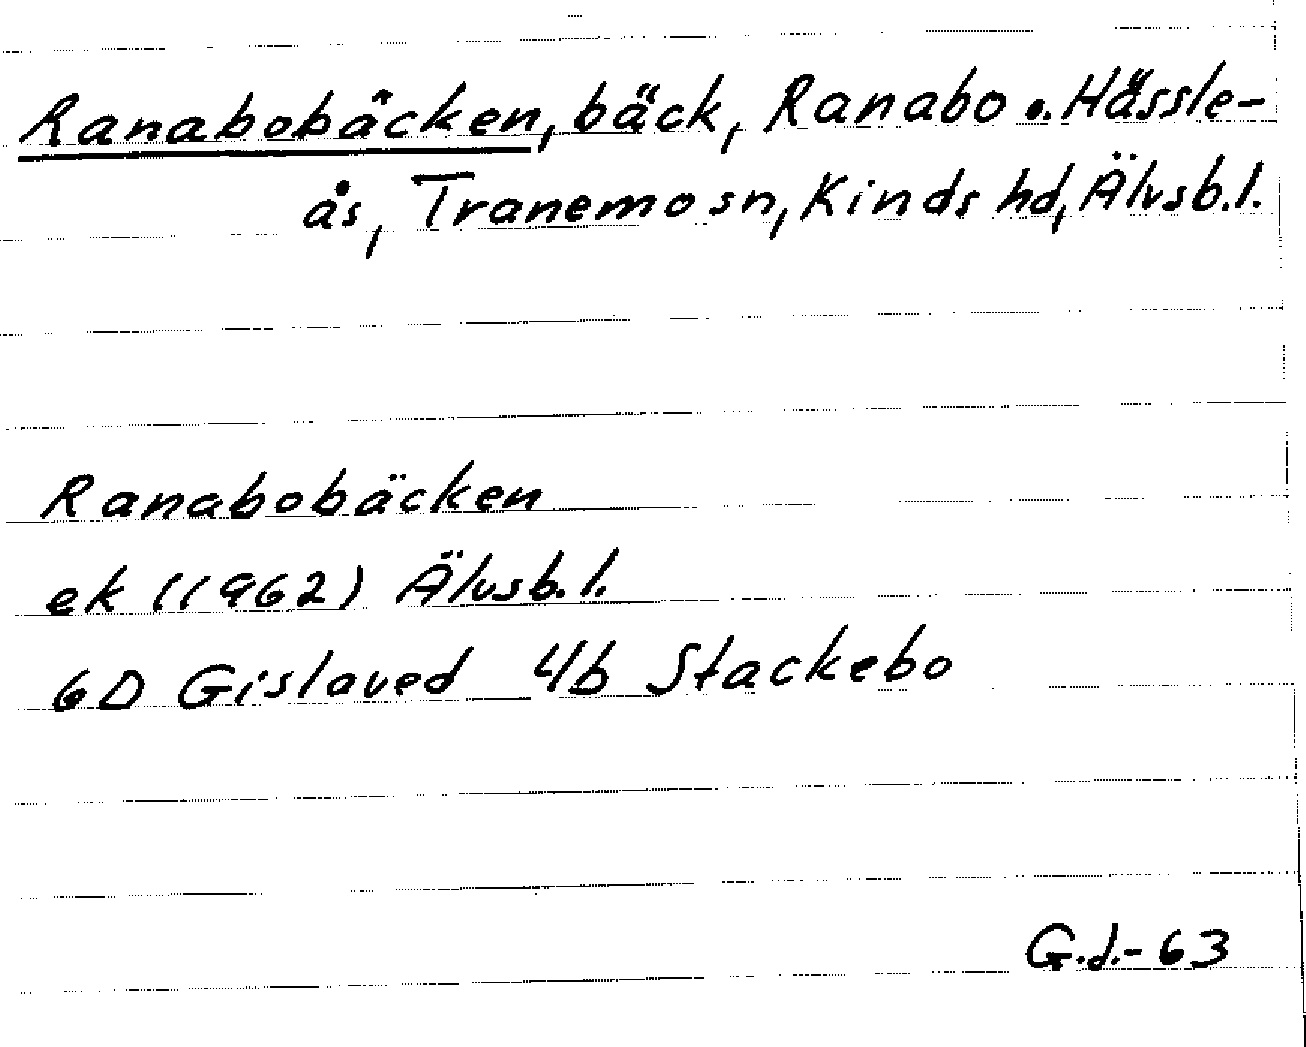 Ranabobäcken, bäck, Ranabo o. Hässle-
ås, Tranemo sn, Kinds hd, Älvsb. l.
Ranabobäcken
ek (1962) Älvsb. l.
6D Gislaved 4b Stackebo
G.d.-63